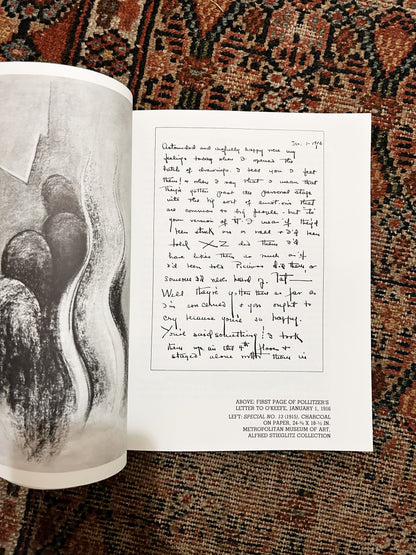 Jan. 1 - 1916
Astounded and awfully happy were my
feelings today when I opened the
batch of drawings. I tell you I felt
them! & when I say that I mean that
They've gotten past the personal stage
into the big sort of emotions that
are common to big people – but it's
your version of it. I mean if they'd
been stuck on a wall & I'd been
told XZ did them I'd
have liked them as much as if
I'd been told Picasso did them, or
someone I'd never heard of. Pat —
Well they've gotten there as far as
I'm concerned & you ought to
cry because you're so happy.
You've said something! I took
them up on the 4th floor &
stayed alone with them in
ABOVE: FIRST PAGE OF POLLITZER'S
LETTER TO O'KEEFE, JANUARY 1, 1916
LEFT: SPECIAL NO. 13 (1915), CHARCOAL
ON PAPER, 24-⅜ X 18-½ IN.
METROPOLITAN MUSEUM OF ART,
ALFRED STIEGLITZ COLLECTION